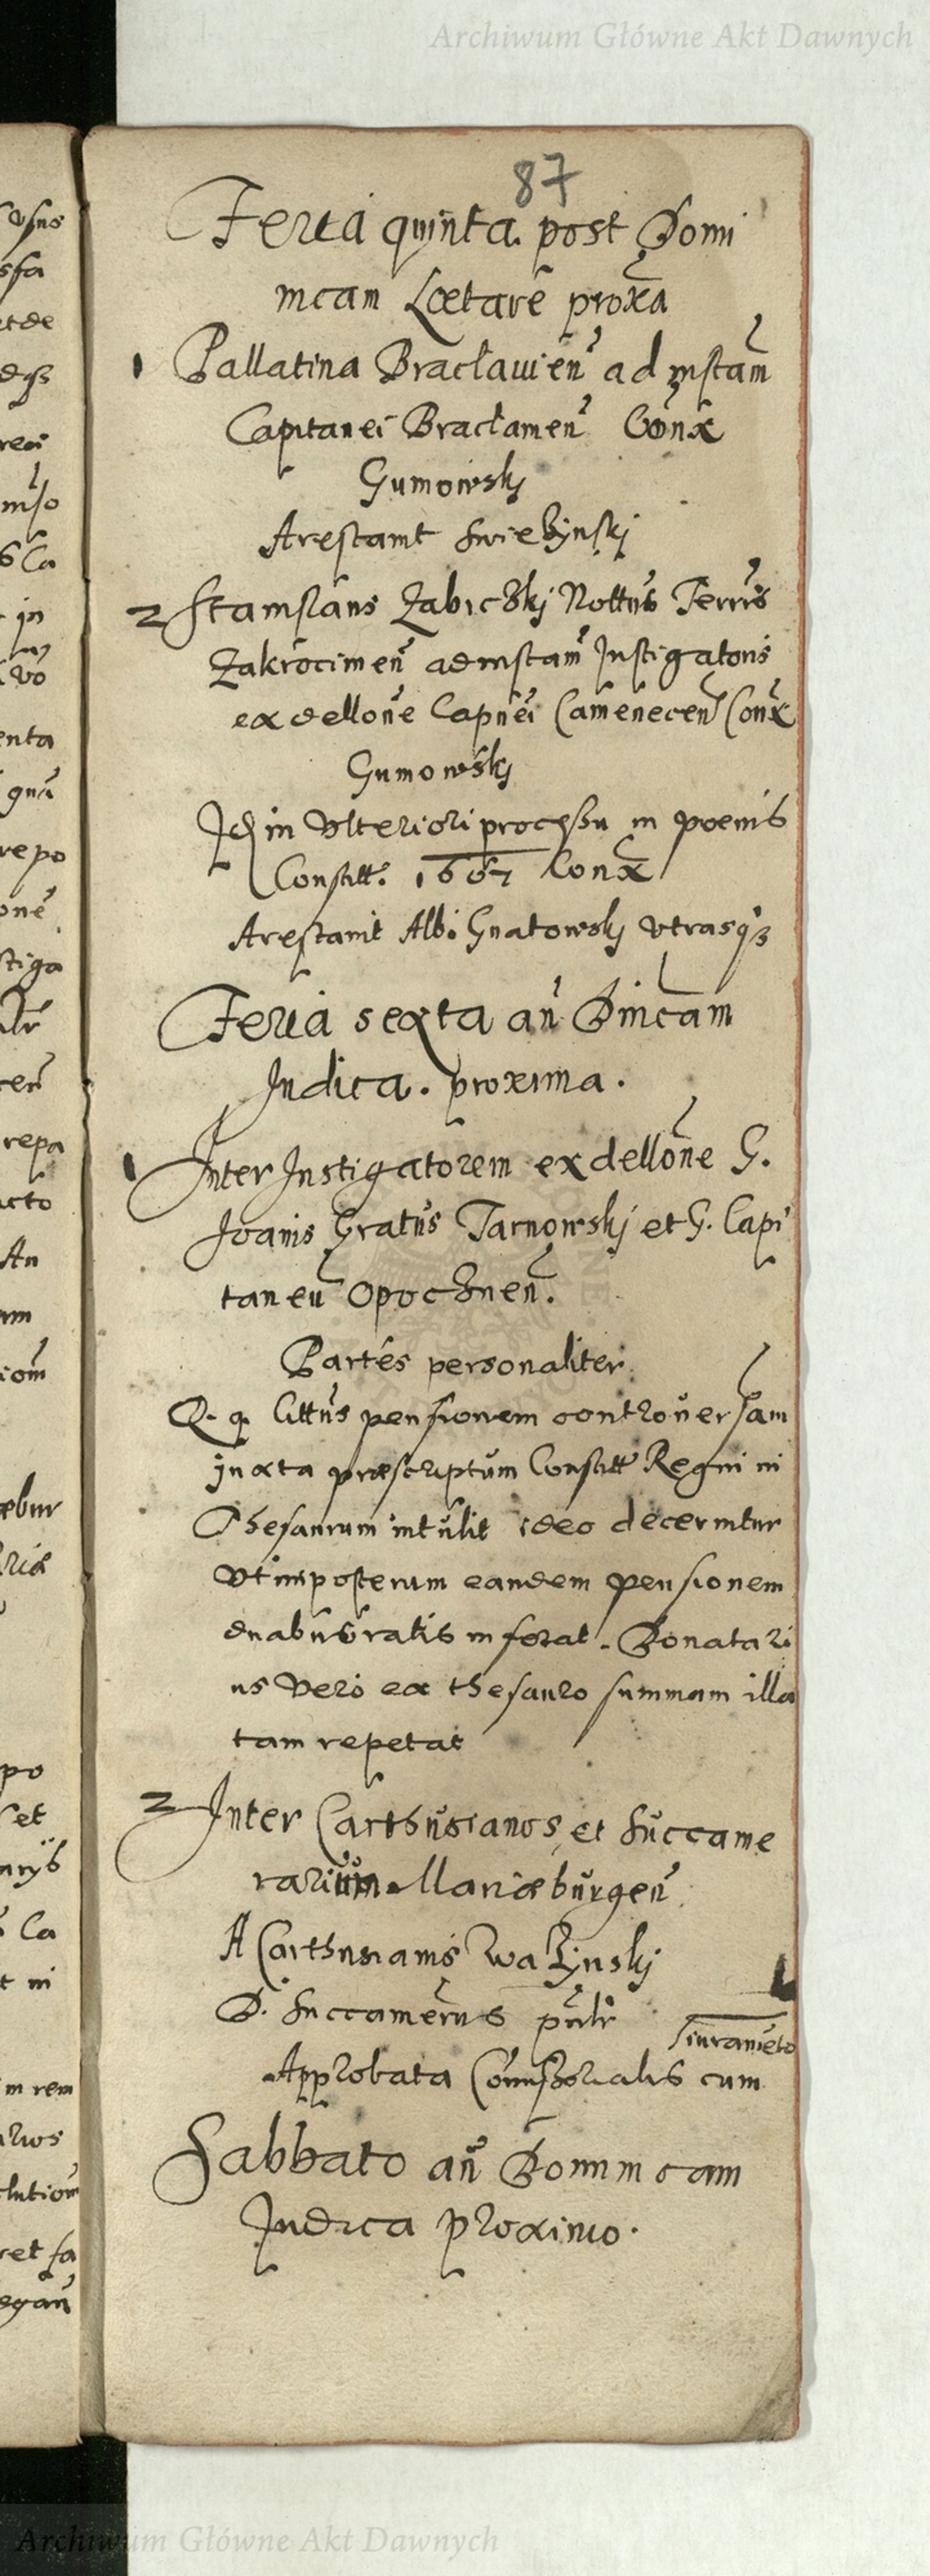 Archiwum Główne Akt Dawnych
87
Feria quinta post Domi
nicam Lætare proxa
1 Pallatina Bracłauien ad instam
Capitanei Bracłauien Conx
Gumowski
Arestauit Swiezynski
2 Stanislaus Zabiczki Nottus Terris
Zakrocimen ad instam Instigatoris
ex dellone Capnei Camenecen Conx
Gumowski
Id in Vlteriori processu in poenis
Constitt. 1607 Conx
Arestauit Alb. Gnatowski vtrasq3
Feria sexta an Dnicam
Iudica. proxima.
1 Inter Instigatorem ex dellone G.
Joanis Gratus Tarnowski et G. Capi
taneu Opocznen.
Partes personaliter
Q. q. Cittus pensionem controuersam
juxta præscriptum Constitt Regni in
Thesaurum intulit ideo decernitur
vt inposterum eandem pensionem
duabus ratis inferat. Donatari
us vero ex thesauro summam illa
tam repetat
2 Inter Carthusianos et Succame
rarium Mariæburgen
A Carthusianis Wazynski
D. Succamerus pnlr
Iuramēto
Approbata Comissorialis cum
Sabbato an Dominicam
Iudica proximo.
Archiwum Główne Akt Dawnych